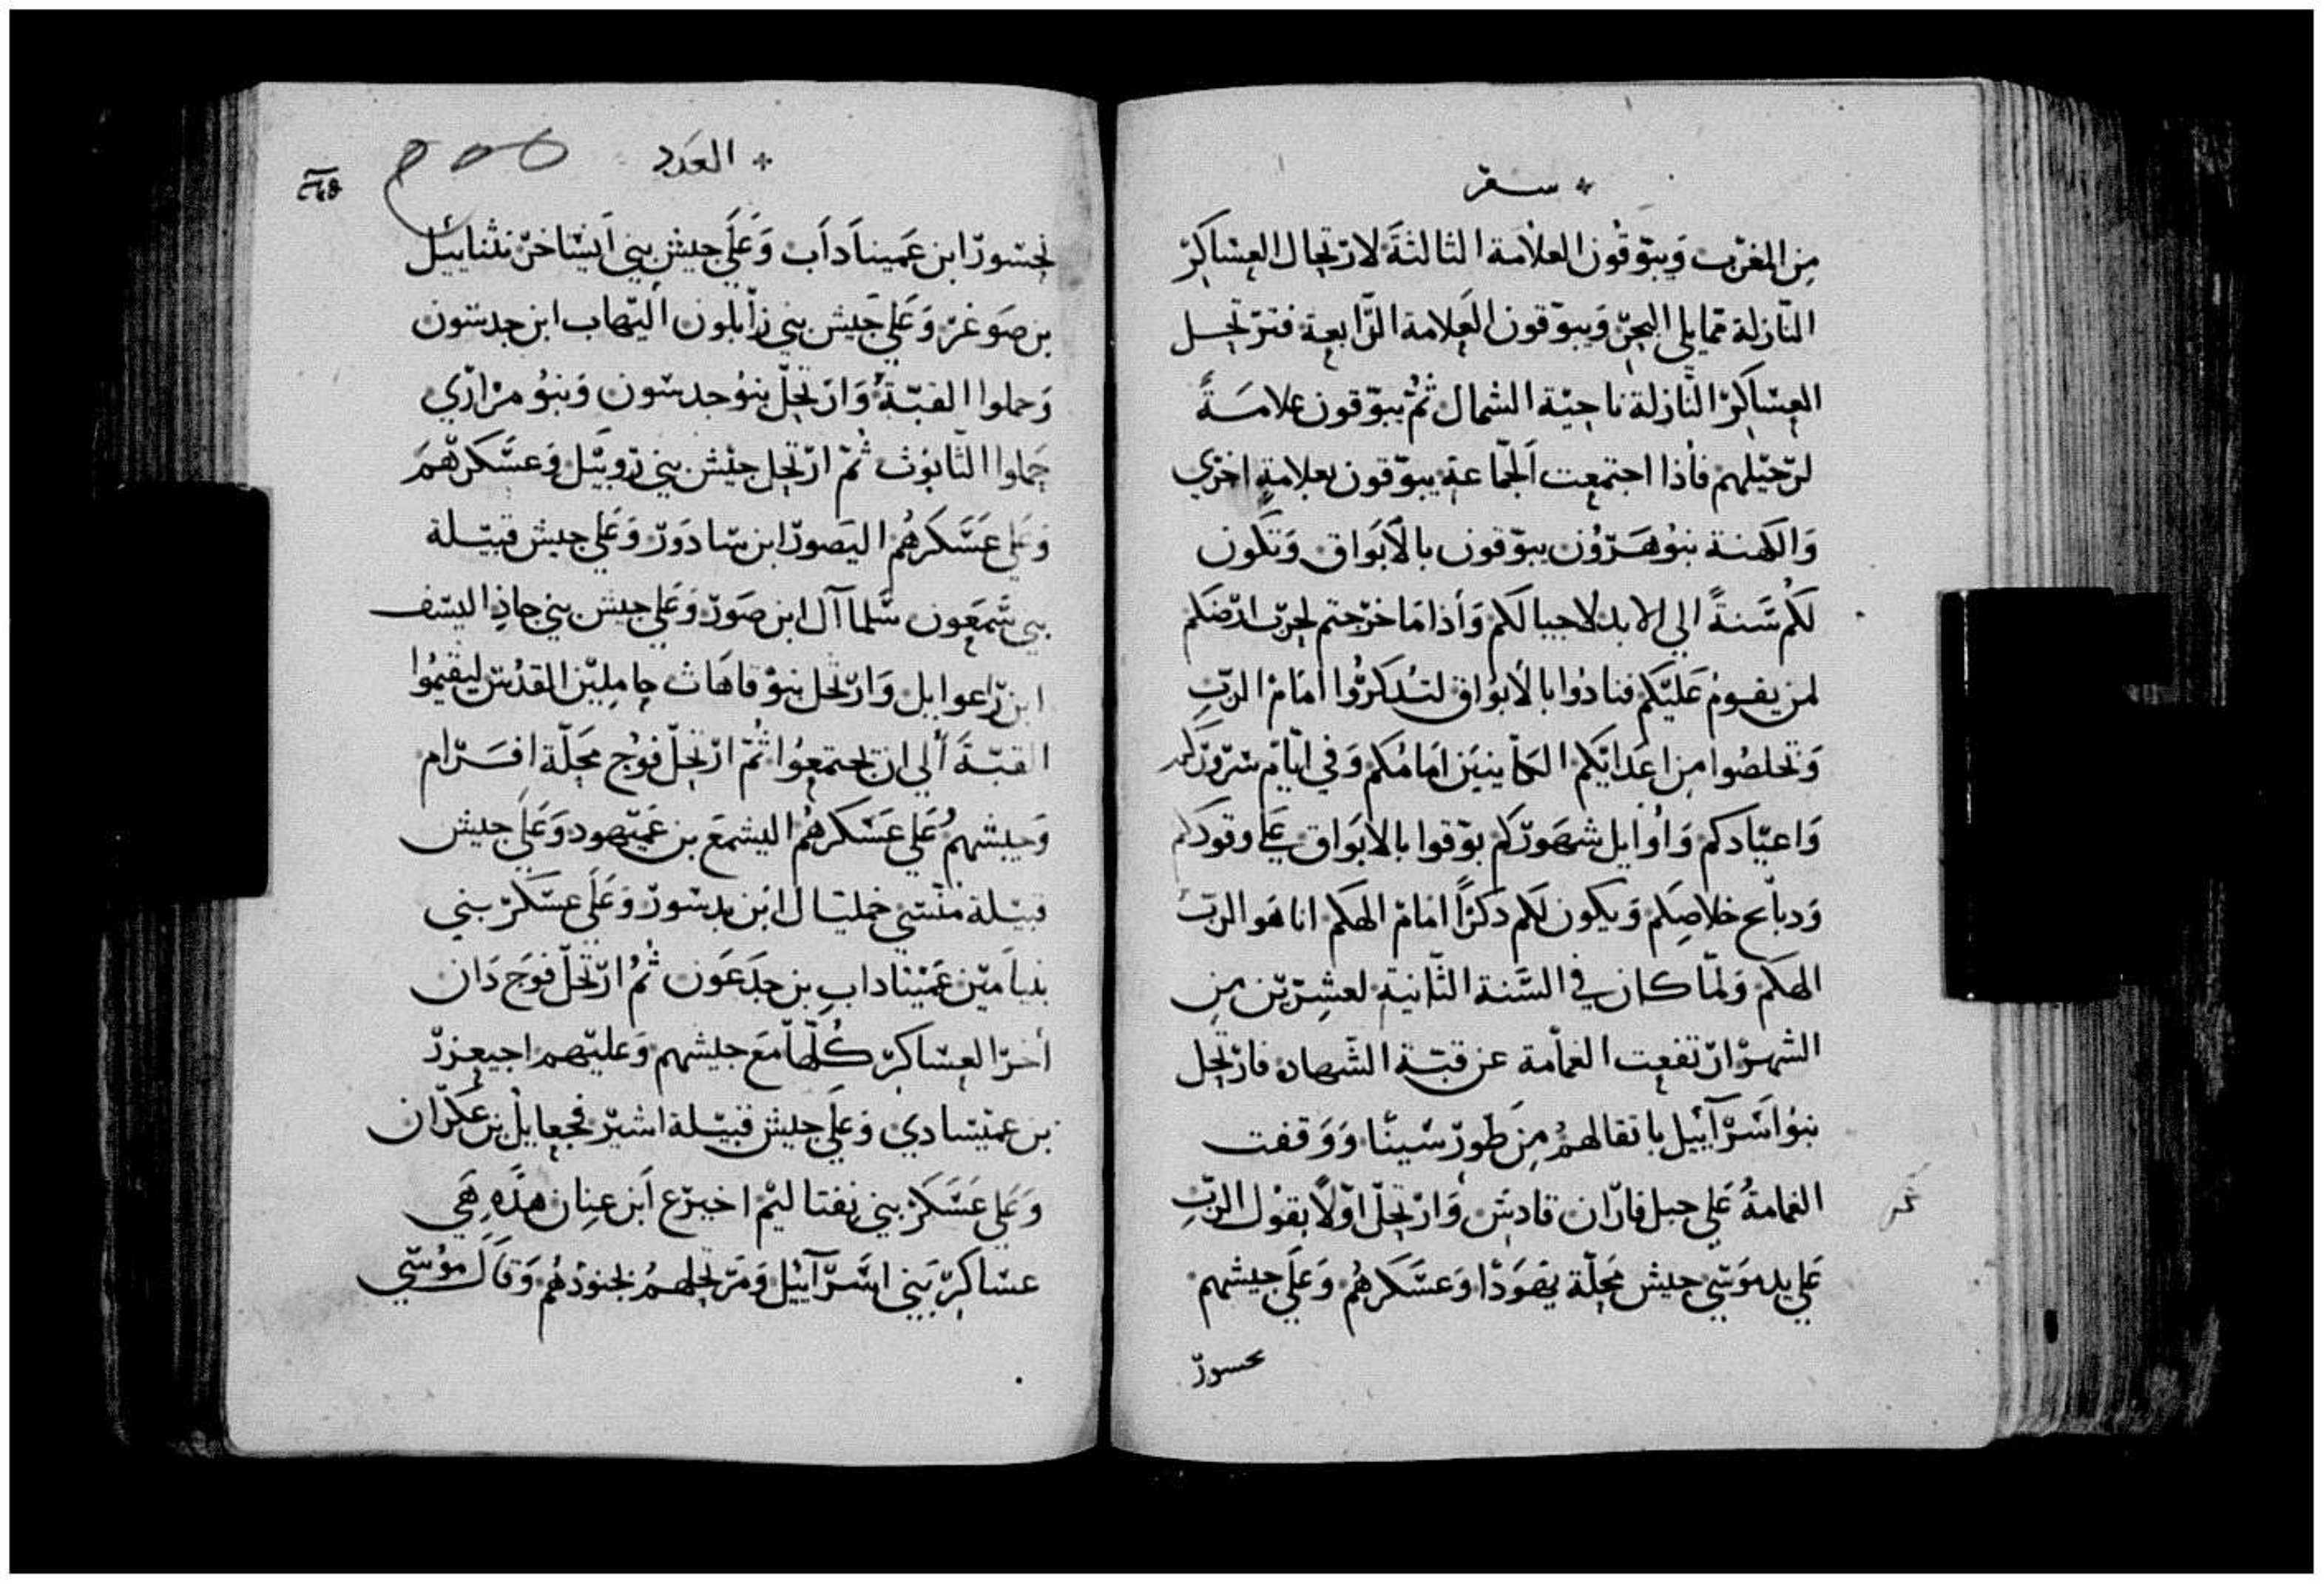 سفر
من المغرب ويبوقون العلامة الثالثة لارتحال العساكر
النازلة مما يلي البحر ويبوقون العلامة الرابعة فترتحل
العساكر النازلة ناحية الشمال ثم يبوقون علامة
لرحيلهم فأذا اجتمعت الجماعة يبوقون بعلامة اخري
والكهنة بنو هرون يبوقون بالأبواق وتكون
لكم سنة الي الابد لاجيالكم وأذا ما خرجتم لحرب ارضكم
لمن يقوم عليكم فنادوا بالأبواق لتدكروا امام الرب
وتخلصوا من اعدايكم الكاينين امامكم وفي ايام سروركم
واعيادكم واوايل شهوركم بوقوا بالابواق علي وقودكم
ودبايح خلاصكم ويكون لكم دكرا امام الهكم انا هو الرب
الهكم ولما كان في السنة الثانية لعشرين من
الشهر ارتفعت الغمامة عن قبة الشهاده فارتحل
بنو اسرآييل باتقالهم من طور سينا ووقفت
الغمامة علي جبل فاران قادش وارتحل اولا بقول الرب
علي يد موسي جيش محلة يهودا وعسكرهم وعلي جيشهم
نحسور
العدد
٢٦٥
نحسور ابن عميناداب وعلي جيش بني ايساخر نثناييل
بن صوغر وعلي جيش بني زابلون اليهاب ابن جدسون
وحملوا القبة وارتحل بنو جدسون وبنو مراري
حملوا التابوث ثم ارتحل جيش بني روبيل وعسكرهم
وعلي عسكرهم اليصور ابن سادور وعلي جيش قبيلة
بني شمعون سلماآل ابن صور وعلي جيش بني جاذ اليسف
ابن راعوايل وارتحل بنو قاهاث حاملين القدس ليقيموا
القبة ألي ان يجتمعوا ثم ارتحل فوج محلة افرام
وجيشهم علي عسكرهم اليشمع بن عميهود وعلي جيش
قبيلة منسي خمليال ابن بدسور وعلي عسكر بني
بنيامين عميناداب بن جدعون ثم ارتحل فوج دان
أخر العساكر كلها مع جيشهم وعليهم اجيعزر
بن عميسادي وعلي جيش قبيلة اشير فجعايل بن عكران
وعلي عسكر بني نفتاليم اخيرع ابن عنان هذه هي
عساكر بني اسرآييل ومرتحلهم بجنودهم وقال موسي